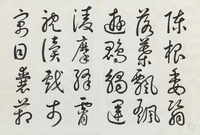 陳根委翳
落葉飄颻
遊鵾獨運
凌摩絳霄
耽讀翫市
寓目囊箱